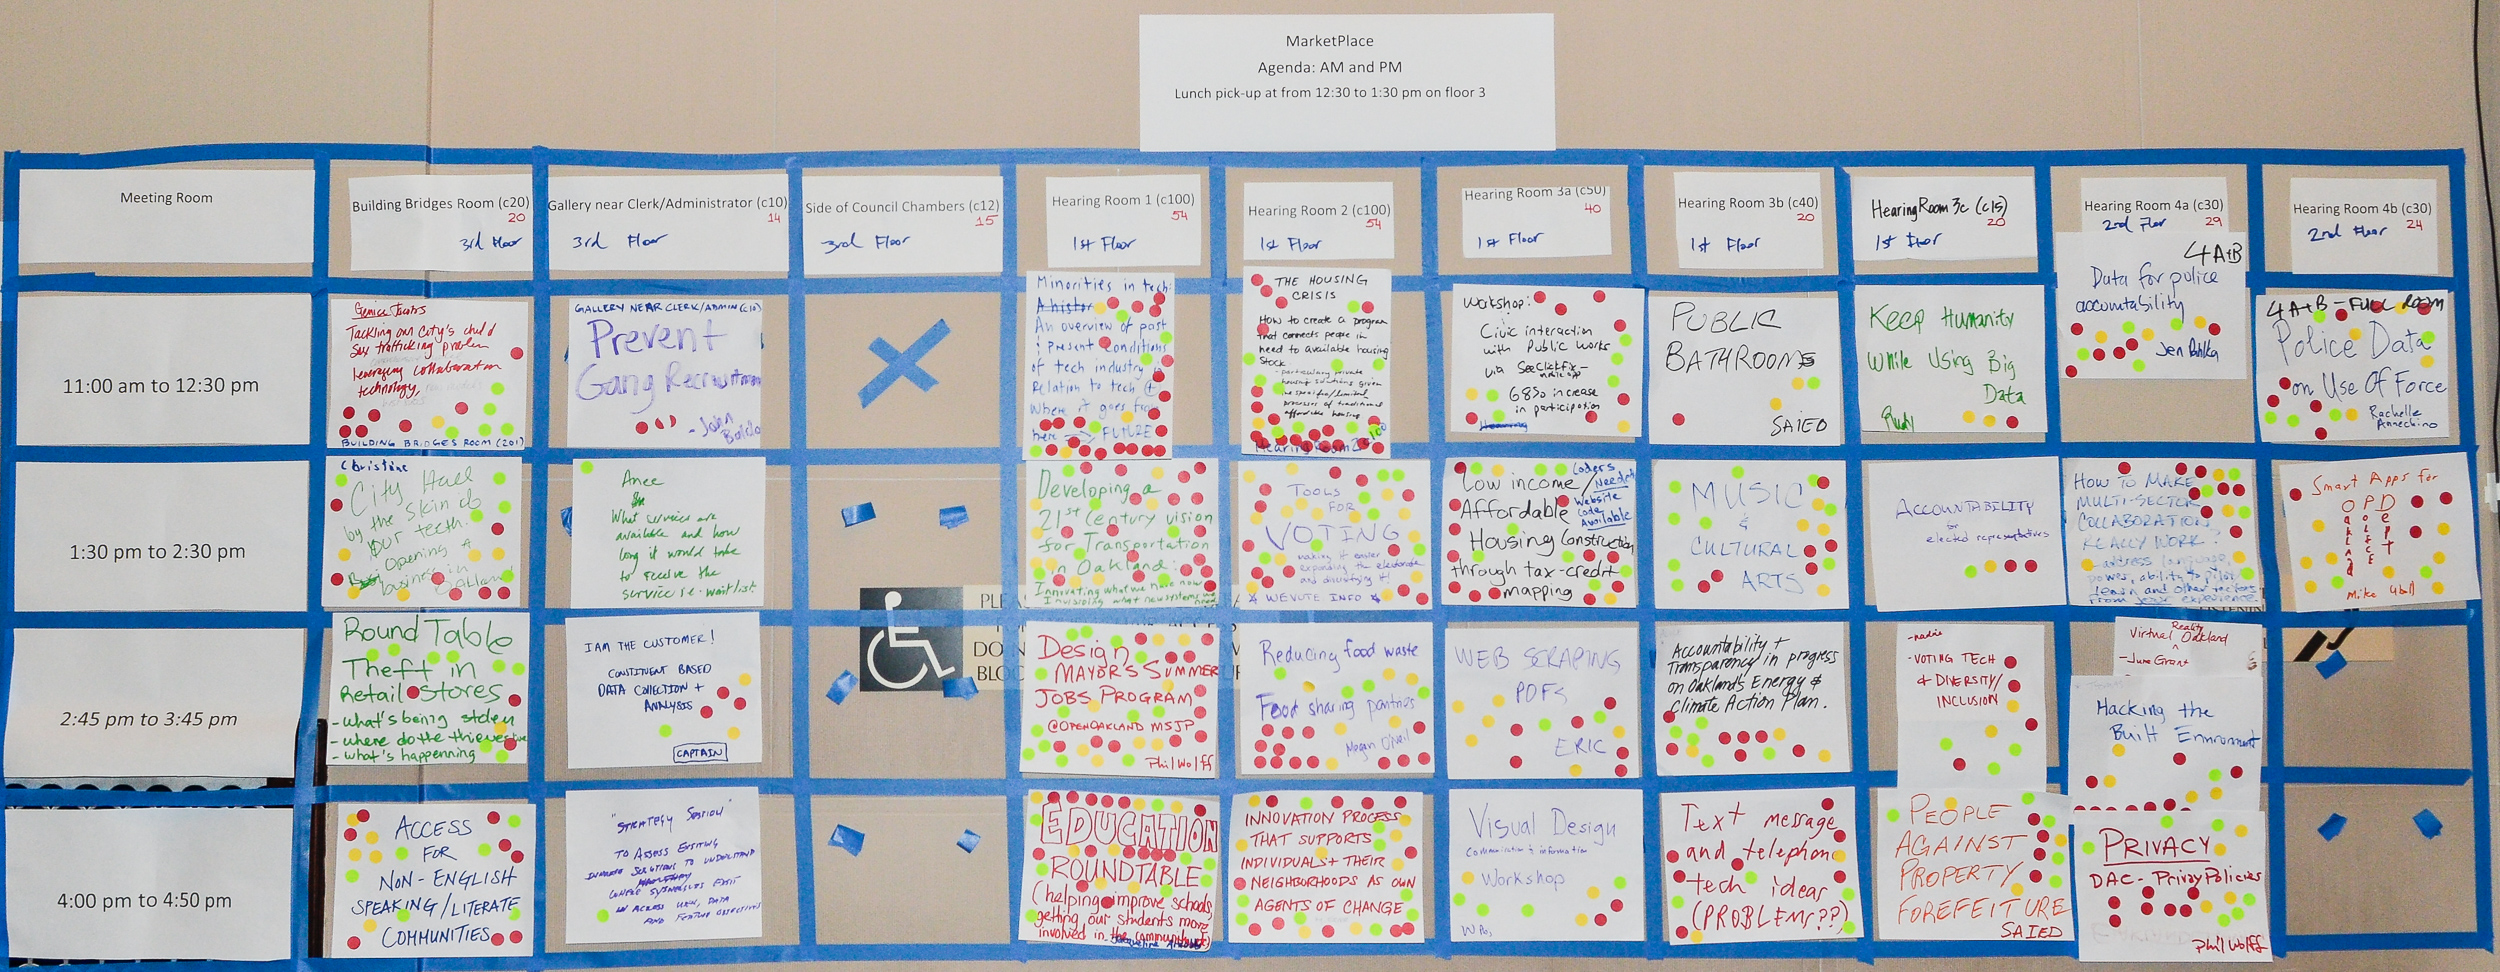 MarketPlace
Agenda: AM and PM
Lunch pick-up at from 12:30 to 1:30 pm on floor 3
Meeting Room
Building Bridges Room (c20)
20
3rd Floor
Gallery near Clerk/Administrator (c10)
14
3rd Floor
Side of Council Chambers (c12)
15
3rd Floor
Hearing Room 1 (c100)
54
1st Floor
Hearing Room 2 (c100)
54
1st Floor
Hearing Room 3a (c50)
40
1st Floor
Hearing Room 3b (c40)
20
1st Floor
Hearing Room 3c (c15)
20
1st Floor
Hearing Room 4a (c30)
2nd Floor 29
Hearing Room 4b (c30)
2nd Floor 24
11:00 am to 12:30 pm
Tackling our city's child
sex trafficking problem
leveraging collaboration
technology,
BUILDING BRIDGES ROOM (201)
GALLERY NEAR CLERK/ADMIN (C10)
Prevent
Gang Recruitment
Minorities in tech:
An overview of past
& present conditions
of tech industry in
relation to tech &
where it goes from
here → FUTURE
THE HOUSING
CRISIS
How to create a program
that connects people in
need to available housing
stock
Hearing Room 2
Workshop:
Civic interaction
with Public Works
via SeeClickFix -
mobile app
68% increase
in participation
Hearing
PUBLIC
BATHROOMS
SAIED
Keep Humanity
While Using Big
Data
Rudy
4 A+B
Data for police
accountability
Jen Pahlka
4A+B - FULL ROOM
Police Data
on Use Of Force
Rachelle
Annechino
1:30 pm to 2:30 pm
Christine
City Hall
by the skin of
our teeth.
Opening a
business in
Oakland!
Anee
What services are
available and how
long it would take
to receive the
service i.e. wait list.
Developing a
21st Century vision
for Transportation
in Oakland:
Innovating what we have now
Envisioning what new systems we
need
TOOLS
FOR
VOTING
making it easier
expanding the electorate
and diversifying it!
WEVOTE INFO
Low income
Affordable
Housing Construction
through tax-credit
mapping
Coders
Needed
Website
Code
Available
MUSIC
&
CULTURAL
ARTS
ACCOUNTABILITY
for
elected representatives
HOW TO MAKE
MULTI-SECTOR
COLLABORATION
REALLY WORK?
- address language,
power, ability to pilot,
learn and other factors
from your experience
Smart Apps for
OPD
Mike Ubell
2:45 pm to 3:45 pm
Round Table
Theft in
Retail Stores
- what's being stolen
- where do the thieves live
- what's happenning
I AM THE CUSTOMER!
CONSTITUENT BASED
DATA COLLECTION +
ANALYSIS
CAPTAIN
Design
MAYOR'S SUMMER
JOBS PROGRAM
@OPENOAKLAND MSJP
Phil Wolff
Reducing food waste
Food sharing pantries
Megan O'Neil
WEB SCRAPING
PDFs
ERIC
Accountability +
Transparency in progress
on Oakland's Energy &
Climate Action Plan.
- VOTING TECH
& DIVERSITY/
INCLUSION
Reality
Virtual Oakland
- June Grant
Hacking the
Built Environment
4:00 pm to 4:50 pm
ACCESS
FOR
NON-ENGLISH
SPEAKING/LITERATE
COMMUNITIES
"STRATEGY SESSION"
TO ASSESS EXISTING
EDUCATION
ROUNDTABLE
(helping improve schools,
getting our students more
involved in the community)
INNOVATION PROCESS
THAT SUPPORTS
INDIVIDUALS + THEIR
NEIGHBORHOODS AS OWN
AGENTS OF CHANGE
Visual Design
Communication & information
Workshop
Text message
and telephone
tech ideas
(PROBLEMS??)
PEOPLE
AGAINST
PROPERTY
FOREFEITURE
SAIED
PRIVACY
DAC - Privacy Policies
Phil Wolff